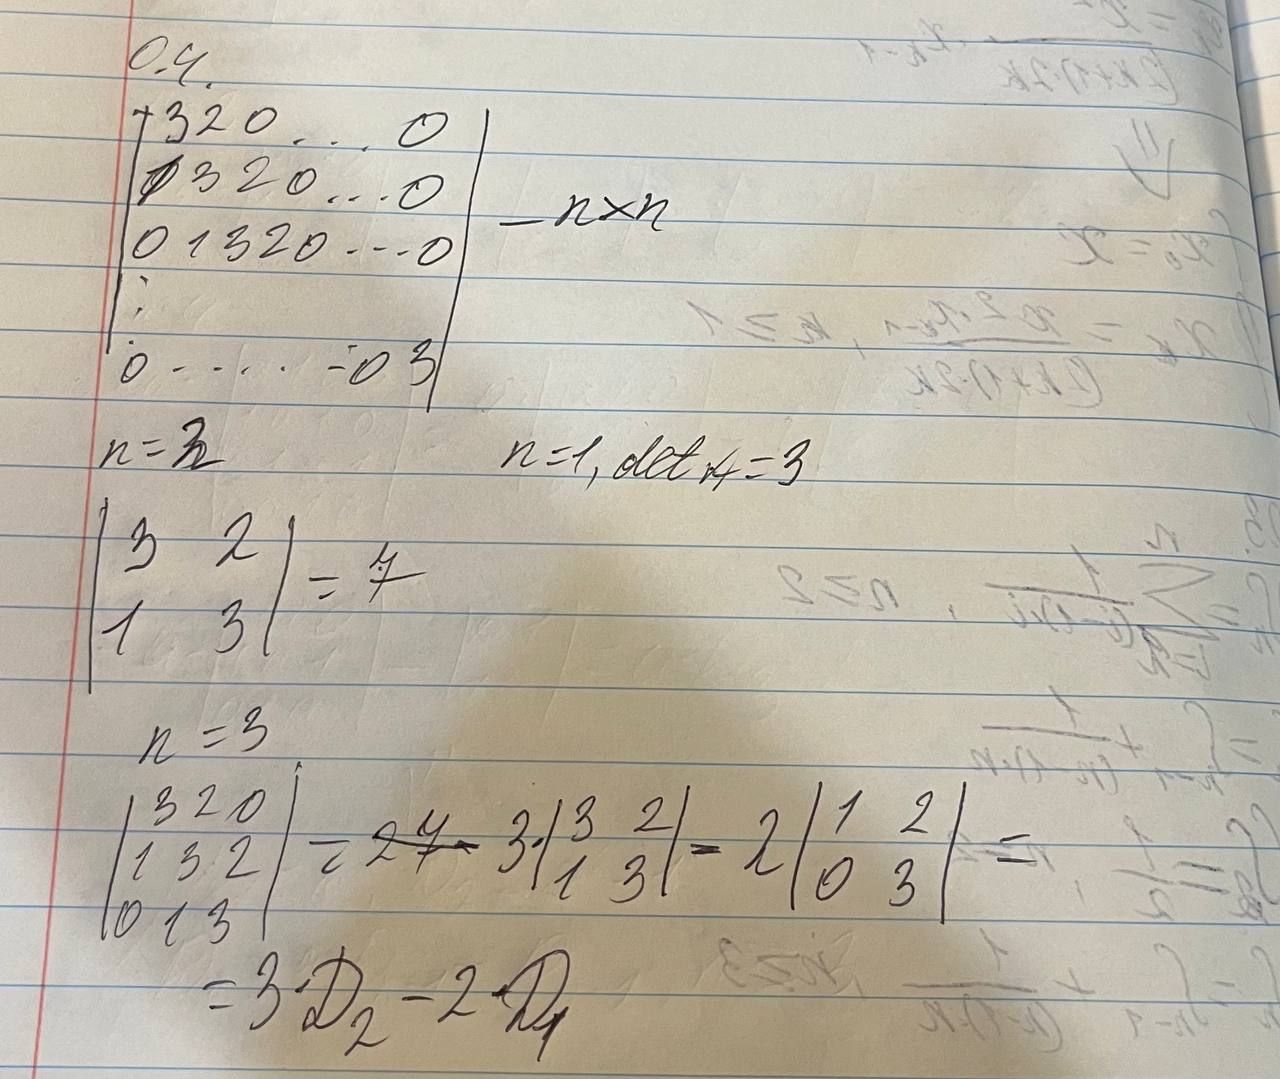 0.4.
320....0
1320...0
01320---0 - n×n
:
0-....-03
n=2 n=1, det A=3
|3 2|
|1 3| = 7
n=3
|320|
|132| = 3·|3 2; 1 3| - 2|1 2; 0 3| =
|013|
=3·D₂-2·D₁